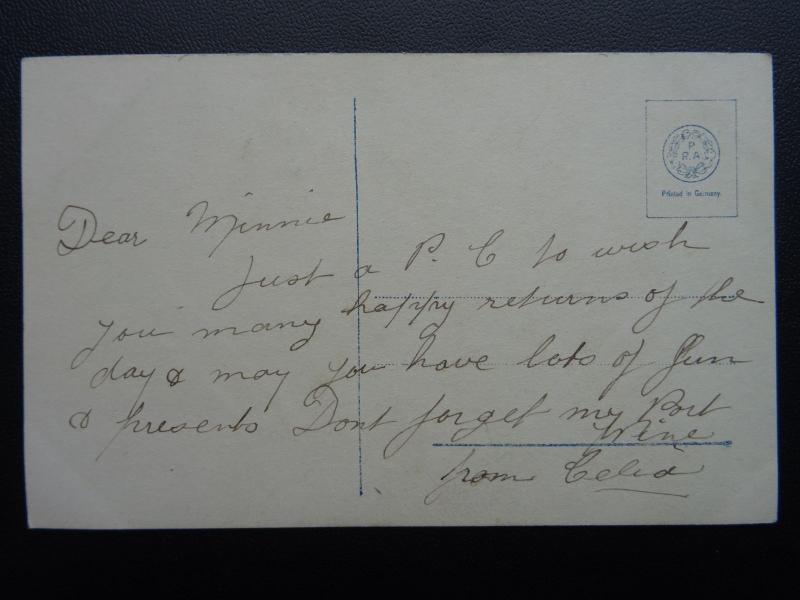 P
R.A
Printed in Germany.
Dear Minnie
Just a P. C to wish
you many happy returns of the
day & may you have lots of Fun
& presents Dont forget my Port
Wine
from Celia